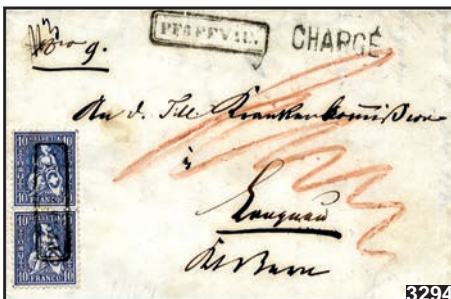 PFAFFNAU.
CHARGÉ
No 9.
An d. Titl. Krankenkommission
in
Langnau
Kt Bern
10 HELVETIA 10
10 FRANCO 10
10 HELVETIA 10
10 FRANCO 10
3294